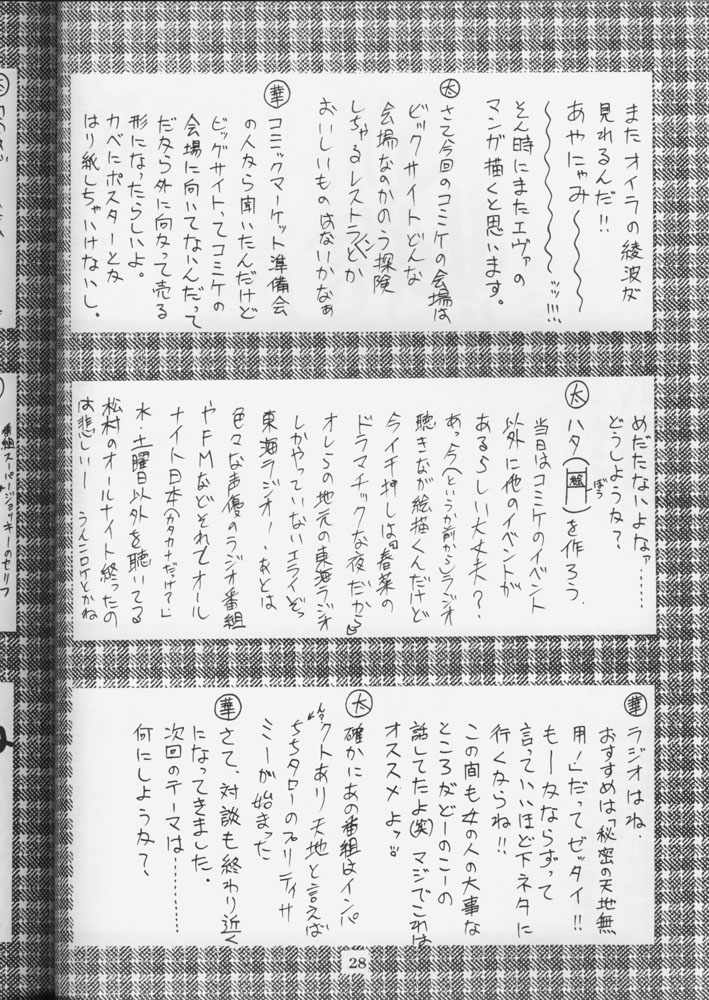 またオイラの綾波が
見れるんだ!!
あやにゃみ～～～
～～～～～ッッ!!!
そん時にまたエヴァの
マンガ描くと思います。
太 さて今回のコミケの会場は
ビックサイトどんな
会場なのかのう探険
しちゃるレストランとか
おいしいものはないかなぁ
華 コミックマーケット準備会
の人から聞いたんだけど
ビッグサイトってコミケの
会場に向いてないんだって
だから外に向かって売る
形になったらしいよ。
カベにポスターとか
はり紙しちゃいけないし。
めだたないよなァ……
どうしようか?
太 ハタ(絵 ぼう)を作ろう.
当日はコミケのイベント
以外に他のイベントが
あるらしい大丈夫?
あっ今(というか前から)ラジオ
聴きなが絵描くんだけど
今イチ押しは『春菜の
ドラマチックな夜だから』
オレらの地元の東海ラジオ
しかやっていないエライぞっ
東海ラジオ!.あとは
色々な声優のラジオ番組
やFMなどそれでオール
ナイト日本(カタカナだっけ?)
水・土曜日以外を聴いてる
松村のオールナイト終ったの
は悲しいー
華 ラジオはね、
おすすめは「秘密の天地無
用!」だってゼッタイ!!
もーかならずって
言っていいほど下ネタに
行くならね!!
この間も女の人の大事な
ところがどーのこーの
話してたよ(笑)マジでこれは
オススメよッ
太 確かにあの番組はインパ
クトあり天地と言えば
ちちタローのプリティサ
ミーが始まった
華 さて、対談も終わり近く
になってきました。
次回のテーマは………
何にしようか?
28
番組スーパージョッキーのセリフ